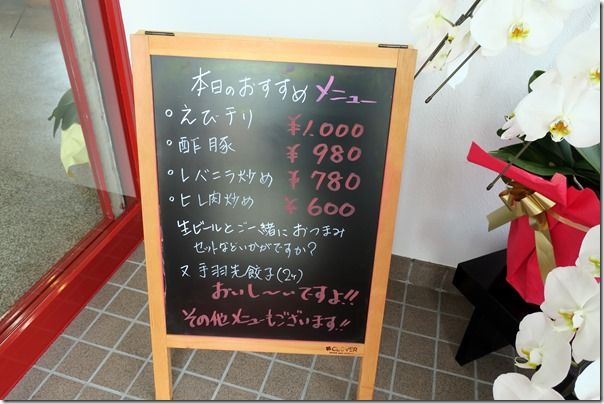 本日のおすすめ メニュー
○えびチリ ¥1,000
○酢豚 ¥980
○レバニラ炒め ¥780
○ヒレ肉炒め ¥600
生ビールとご一緒におつまみ
セットなどいかがですか?
又 手羽先餃子(2ヶ)
おいし〜いですよ!!
その他メニューもございます!!
CLOVER